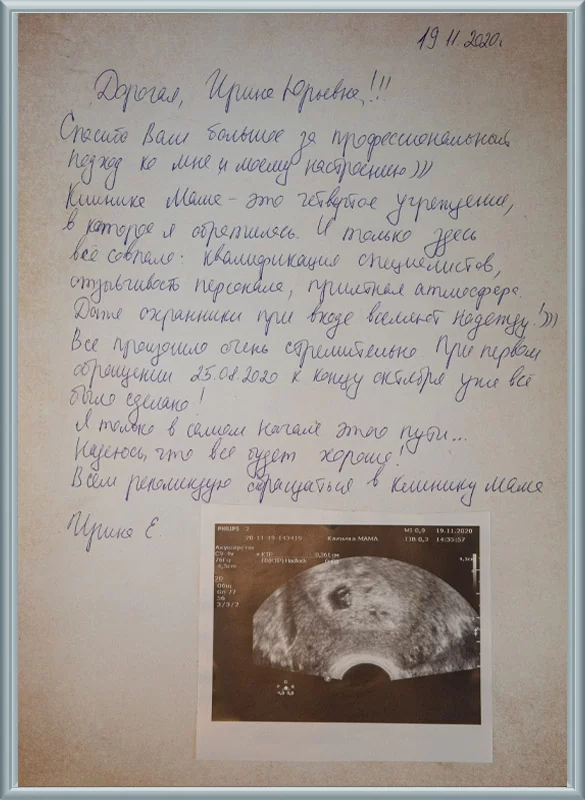 19.11.2020г
Дорогая, Ирина Юрьевна!!!
Спасибо Вам большое за профессиональный
подход ко мне и моему настроению)))
Клинике Мама - это четвёртое учреждение,
в которое я обратилась. И только здесь
всё совпало: квалификация специалистов,
отзывчивость персонала, приятная атмосфера.
Даже охранники при входе вселяют надежду!)))
Все произошло очень стремительно. При первом
обращении 25.08.2020 к концу октября уже всё
было сделано!
Я только в самом начале этого пути...
Надеюсь, что все будет хорошо!
Всем рекомендую обращаться в клинику Мама
Ирина Е.
PHILIPS
MI 0,9 19.11.2020
Клиника МАМА
TIB 0,3 14:35:57
Акушерство
C9-4v
76Гц
4,5cm
+ КТР 0,261 см
2D
Общ
Gn 77
56
3/3/2